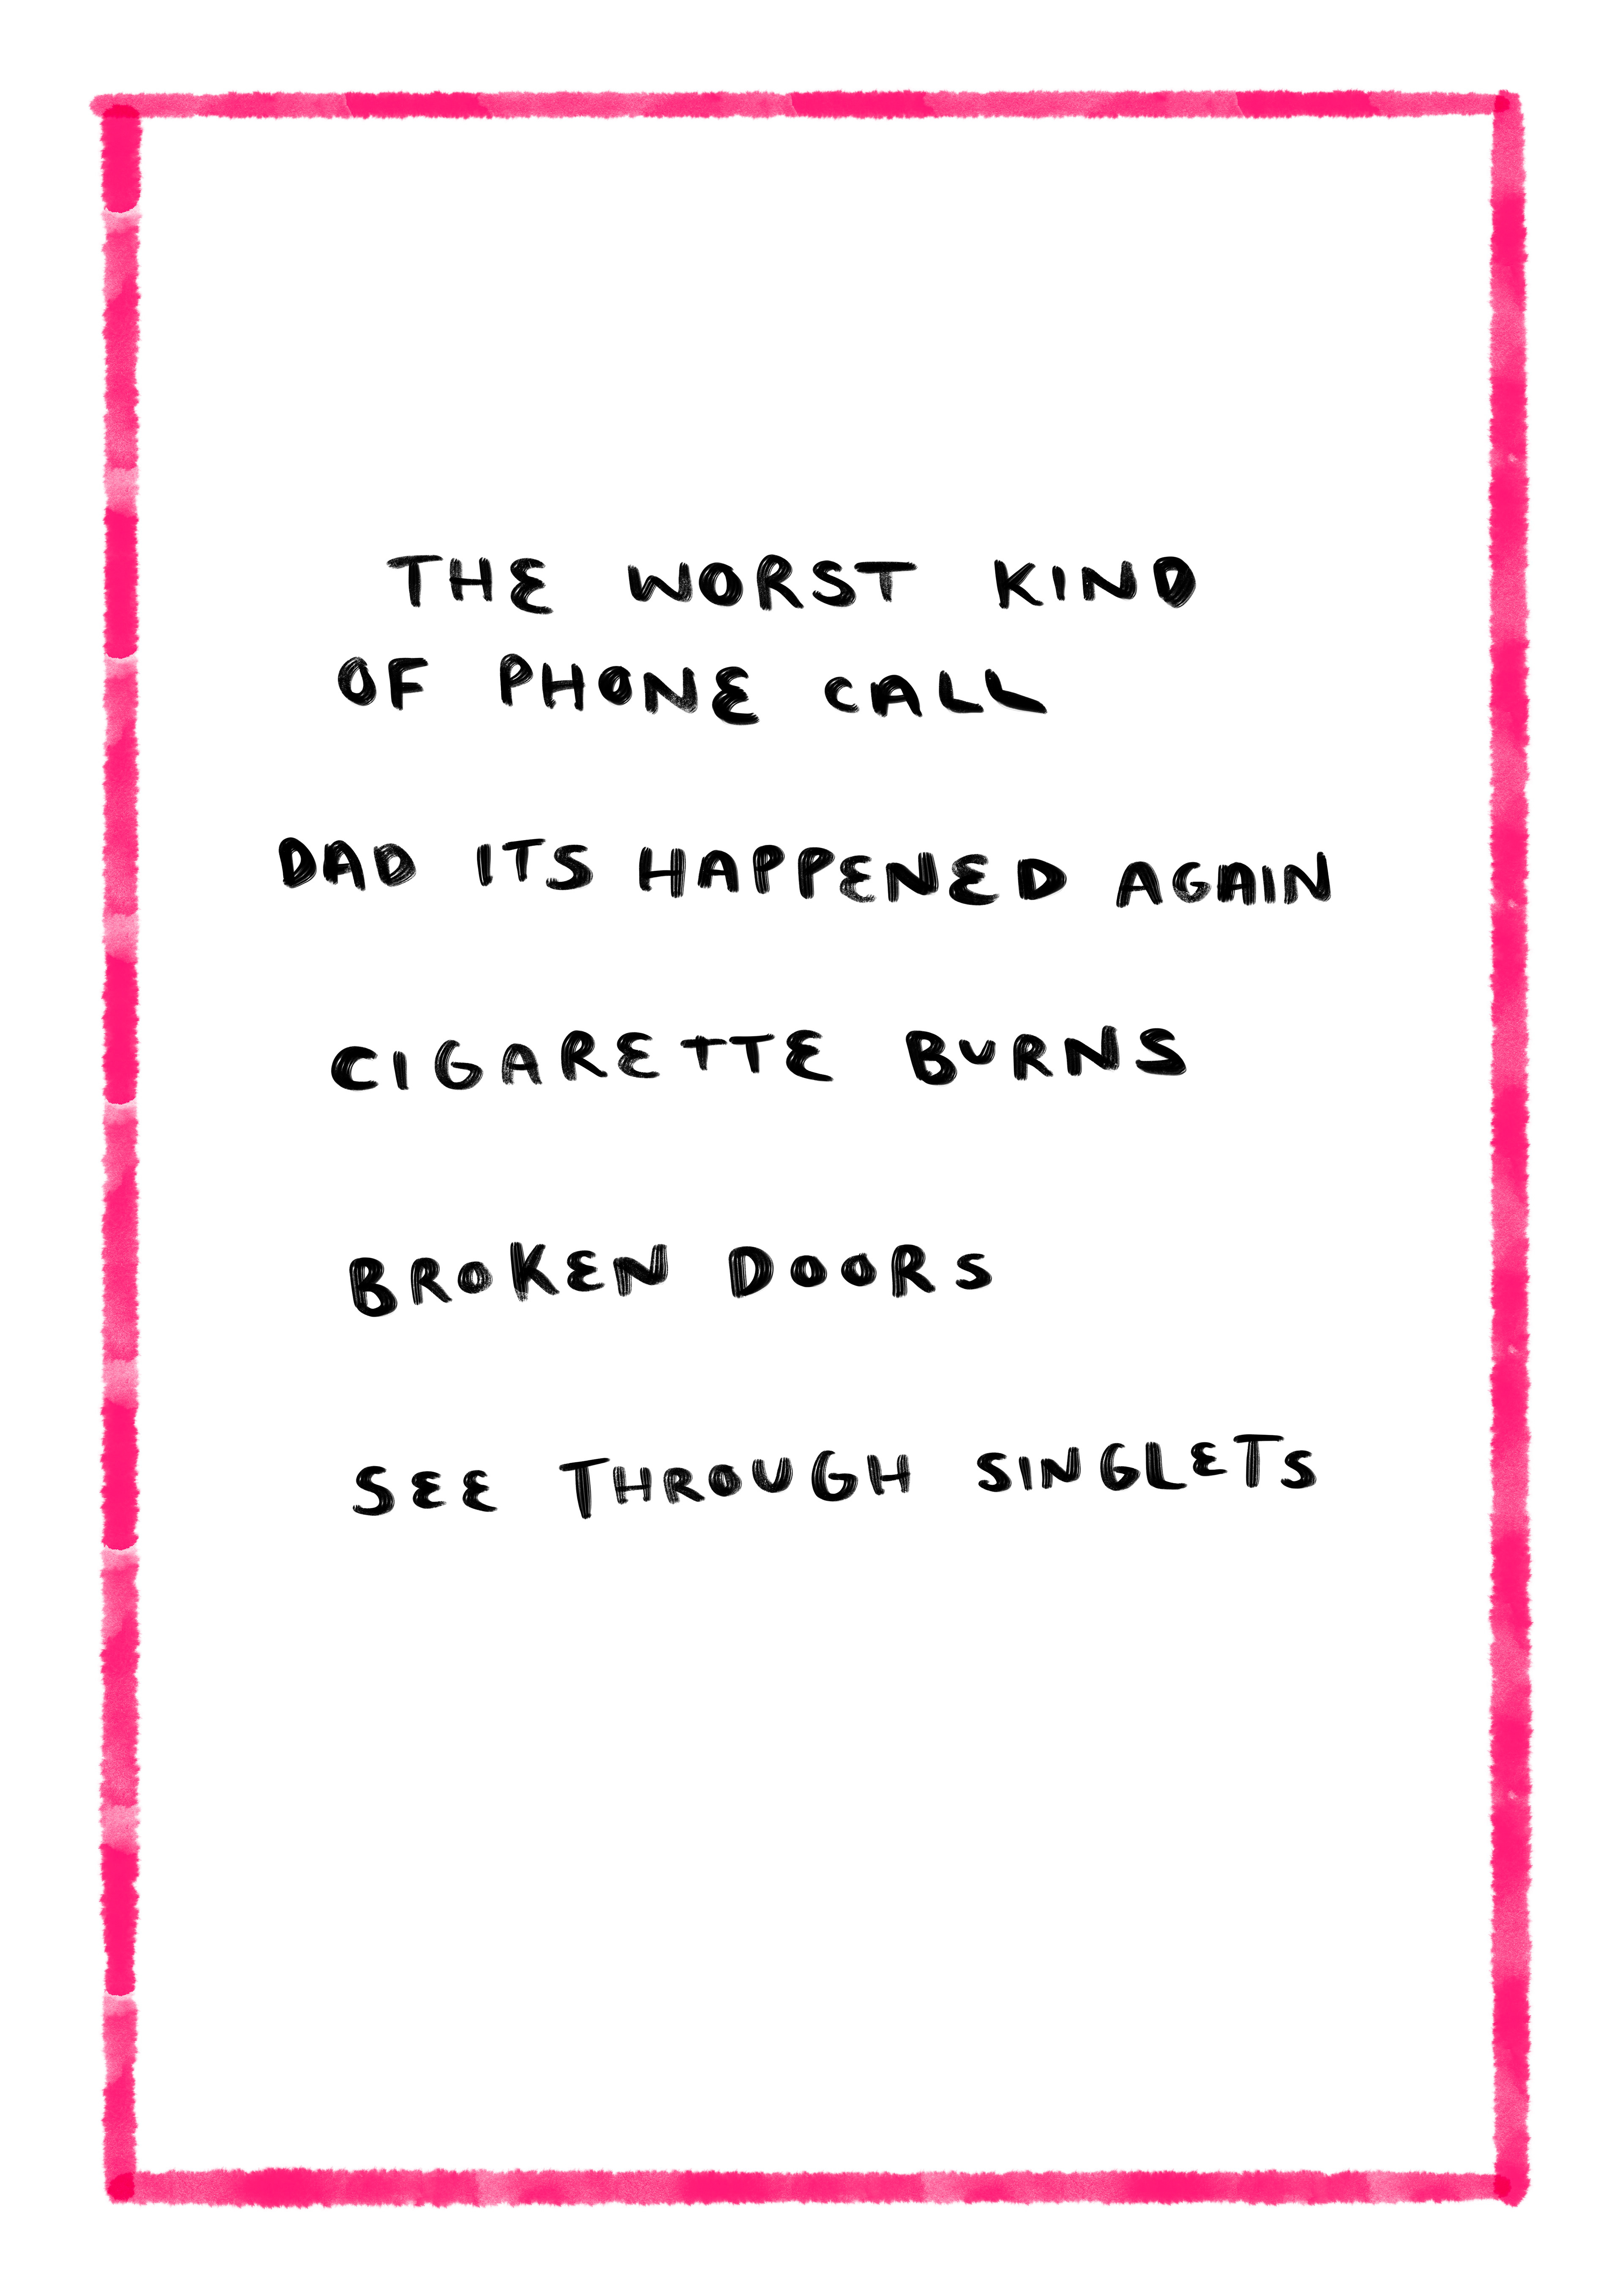 THE WORST KIND
OF PHONE CALL
DAD ITS HAPPENED AGAIN
CIGARETTE BURNS
BROKEN DOORS
SEE THROUGH SINGLETS